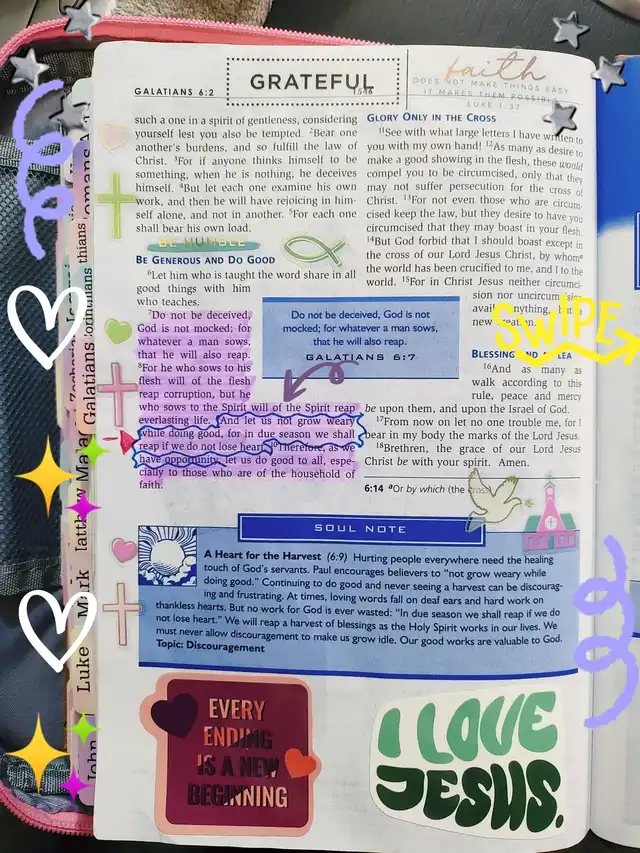 GALATIANS 6:2
GRATEFUL
1546
faith
DOES NOT MAKE THINGS EASY
IT MAKES THEM POSSIBLE
LUKE 1:37
such a one in a spirit of gentleness, considering
yourself lest you also be tempted. 2Bear one
another's burdens, and so fulfill the law of
Christ. 3For if anyone thinks himself to be
something, when he is nothing, he deceives
himself. 4But let each one examine his own
work, and then he will have rejoicing in him-
self alone, and not in another. 5For each one
shall bear his own load.
BE HUMBLE
BE GENEROUS AND DO GOOD
6Let him who is taught the word share in all
good things with him
who teaches.
7Do not be deceived,
God is not mocked; for
whatever a man sows,
that he will also reap.
8For he who sows to his
flesh will of the flesh
reap corruption, but he
who sows to the Spirit will of the Spirit reap
everlasting life. And let us not grow weary
while doing good, for in due season we shall
reap if we do not lose heart. 10Therefore, as we
have opportunity, let us do good to all, espe-
cially to those who are of the household of
faith.
Do not be deceived, God is not
mocked; for whatever a man sows,
that he will also reap.
GALATIANS 6:7
GLORY ONLY IN THE CROSS
11See with what large letters I have written to
you with my own hand! 12As many as desire to
make a good showing in the flesh, these would
compel you to be circumcised, only that they
may not suffer persecution for the cross of
Christ. 13For not even those who are circum-
cised keep the law, but they desire to have you
circumcised that they may boast in your flesh.
14But God forbid that I should boast except in
the cross of our Lord Jesus Christ, by whomª
the world has been crucified to me, and I to the
world. 15For in Christ Jesus neither circumci-
sion nor uncircumcision
avails anything, but a
new creation.
SWIPE
BLESSING AND A PLEA
16And as many as
walk according to this
rule, peace and mercy
be upon them, and upon the Israel of God.
17From now on let no one trouble me, for I
bear in my body the marks of the Lord Jesus.
18Brethren, the grace of our Lord Jesus
Christ be with your spirit. Amen.
6:14 ªOr by which (the cross)
SOUL NOTE
A Heart for the Harvest (6:9) Hurting people everywhere need the healing
touch of God's servants. Paul encourages believers to "not grow weary while
doing good." Continuing to do good and never seeing a harvest can be discourag-
ing and frustrating. At times, loving words fall on deaf ears and hard work on
thankless hearts. But no work for God is ever wasted: "In due season we shall reap if we do
not lose heart." We will reap a harvest of blessings as the Holy Spirit works in our lives. We
must never allow discouragement to make us grow idle. Our good works are valuable to God.
Topic: Discouragement
EVERY
ENDING
IS A NEW
BEGINNING
I LOVE
JESUS.
Galatians
Mark
Luke
John